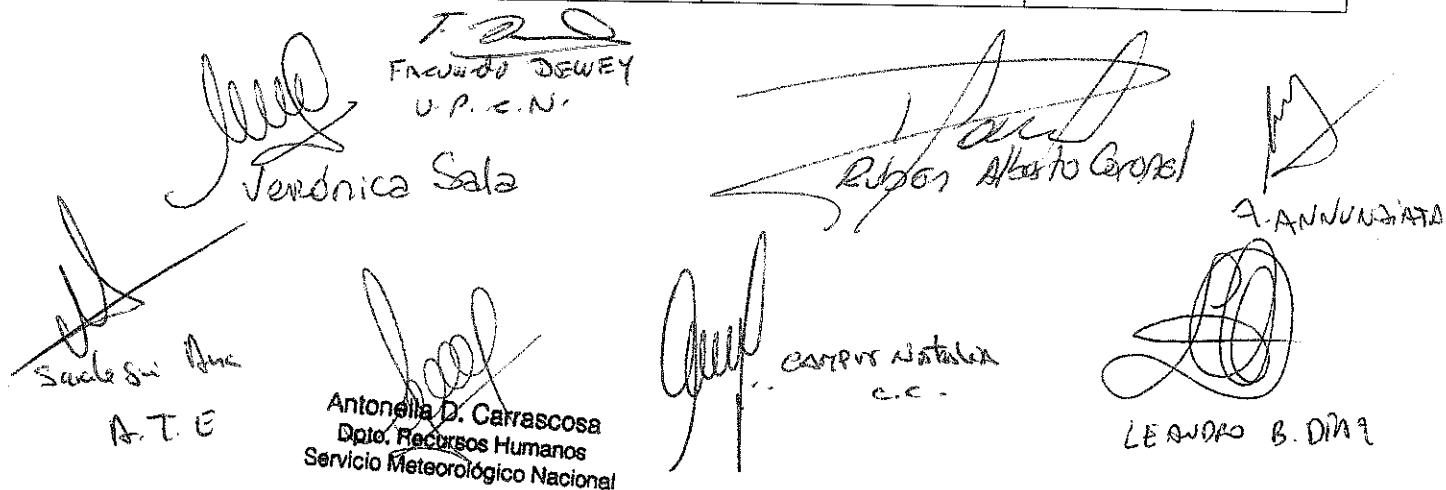 FACUNDO DEWEY
U.P.C.N.
Verónica Sala
Ruben Alberto Coronel
A. ANNUNZIATA
Ana
A.T.E
Antonella D. Carrascosa
Dpto. Recursos Humanos
Servicio Meteorológico Nacional
CAMPUS NATALIA
C.C.
LEANDRO B. DIAZ